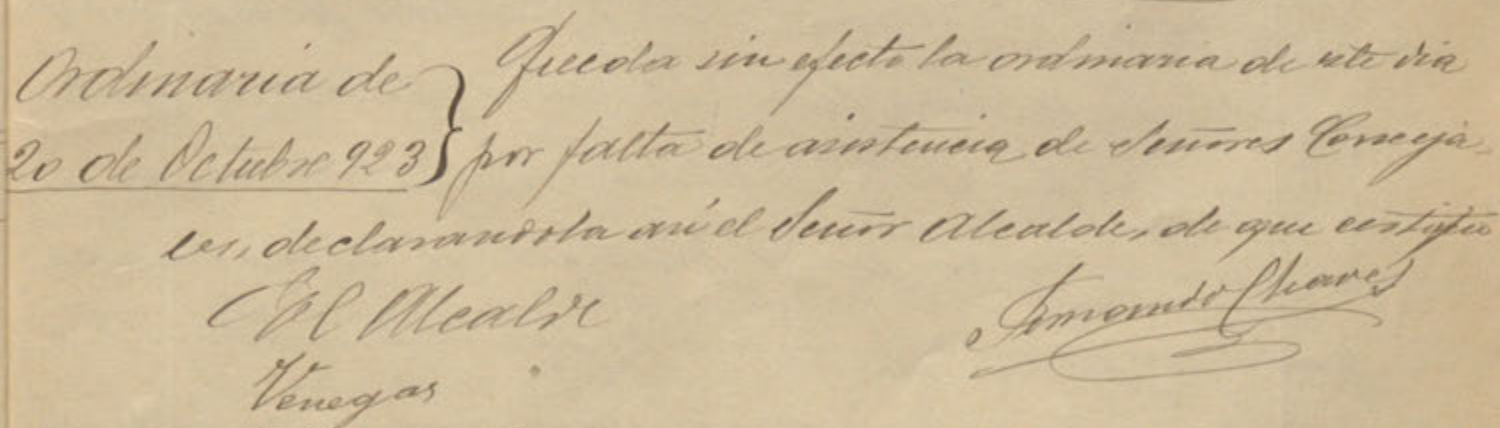 Ordinaria de
20 de Octubre 923
Queda sin efecto la ordinaria de este dia
por falta de asistencia de Señores Conceja-
les, declarandola así el Señor Alcalde, de que certifico
El Alcalde
Venegas
Fernando Chaves